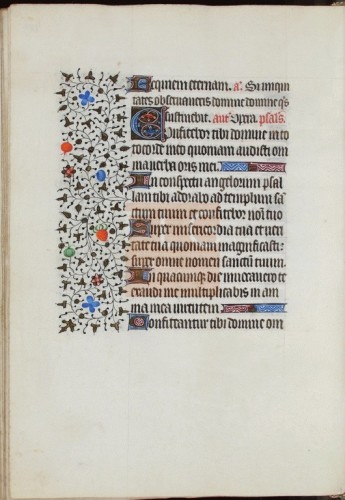 Requiem eternam. a. Si iniqui
tates observaveris domine domine q̄s
sustinebit. añ. Opera. psal̄s.
Confitebor tibi domine in to
to corde meo quoniam audisti om
nia verba oris mei.
In conspectu angelorum psal
lam tibi adorabo ad templum sa
ctum tuum et confitebor noı̄ tuo
Super misericordia tua et veri
tate tua quoniam magnificasti
super omne nomen sanctū tuum.
In quacūq; die invocavero te
exaudi me multiplicabis in ani
ma mea virtutem
Confiteantur tibi domine om